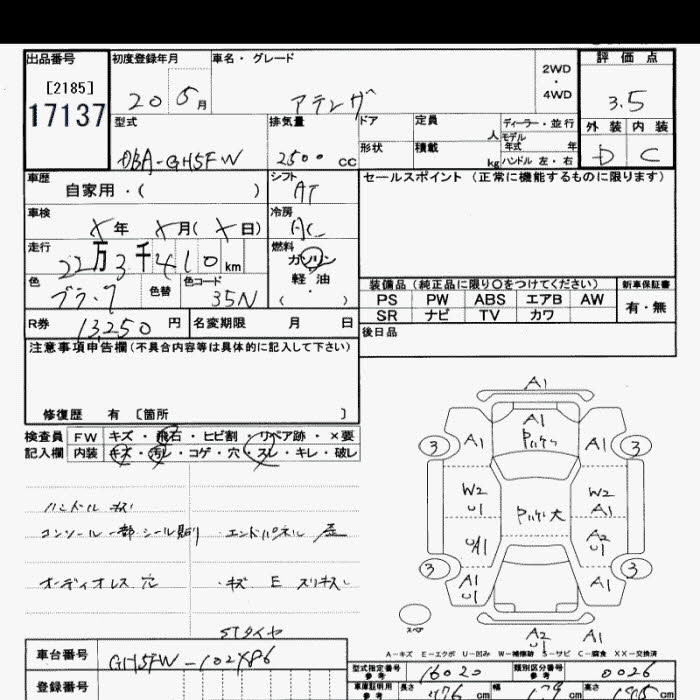 出品番号 初度登録年月 車名・グレード 2WD・4WD 評価点
[2185]
17137 20 5月 アテンザ 3.5
型式 排気量 ドア 定員 人 ディーラー・並行 外装 内装
モデル年式 年
DBA-GH5FW 2500 cc 形状 積載 kg ハンドル 左・右 D C
車歴 シフト セールスポイント (正常に機能するものに限ります)
自家用・( ) AT
車検 冷房
X年 X月( X日) AC
走行 燃料
22万3千410 km ガソリン
色 色替 色コード 軽油
35N ( ・ )
装備品(純正品に限り〇をつけてください) 新車保証書
PS PW ABS エアB AW 有・無
SR ナビ TV カワ
R券 13,250 円 名変期限 月 日 後日品
注意事項申告欄(不具合内容等は具体的に記入して下さい)
修復歴 有 〔箇所 〕
検査員 FW キズ・飛石・ヒビ割・リペア跡・×要
記入欄 内装 キズ・汚レ・コゲ・穴・スレ・キレ・破レ
ハンドル スレ
コンソール一部シール貼り ・エンドパネル 歪
オーディオレス 穴 ・キズ E スリキズ
STタイヤ
A1
A1
3 A1 A1 3
W2 W2
U1 A1
大
A2
U1
3 3
A1 A1
U1
スペア
A2 A1
U1
A-キズ E-エクボ U-凹み W-補修跡 S-サビ C-腐食 XX-交換済
車台番号 GH5FW-102486
型式指定番号 参考 16020 類別区分番号 参考 0026
登録番号
車庫証明用 参考 長さ 476 cm 幅 179 cm 高さ cm